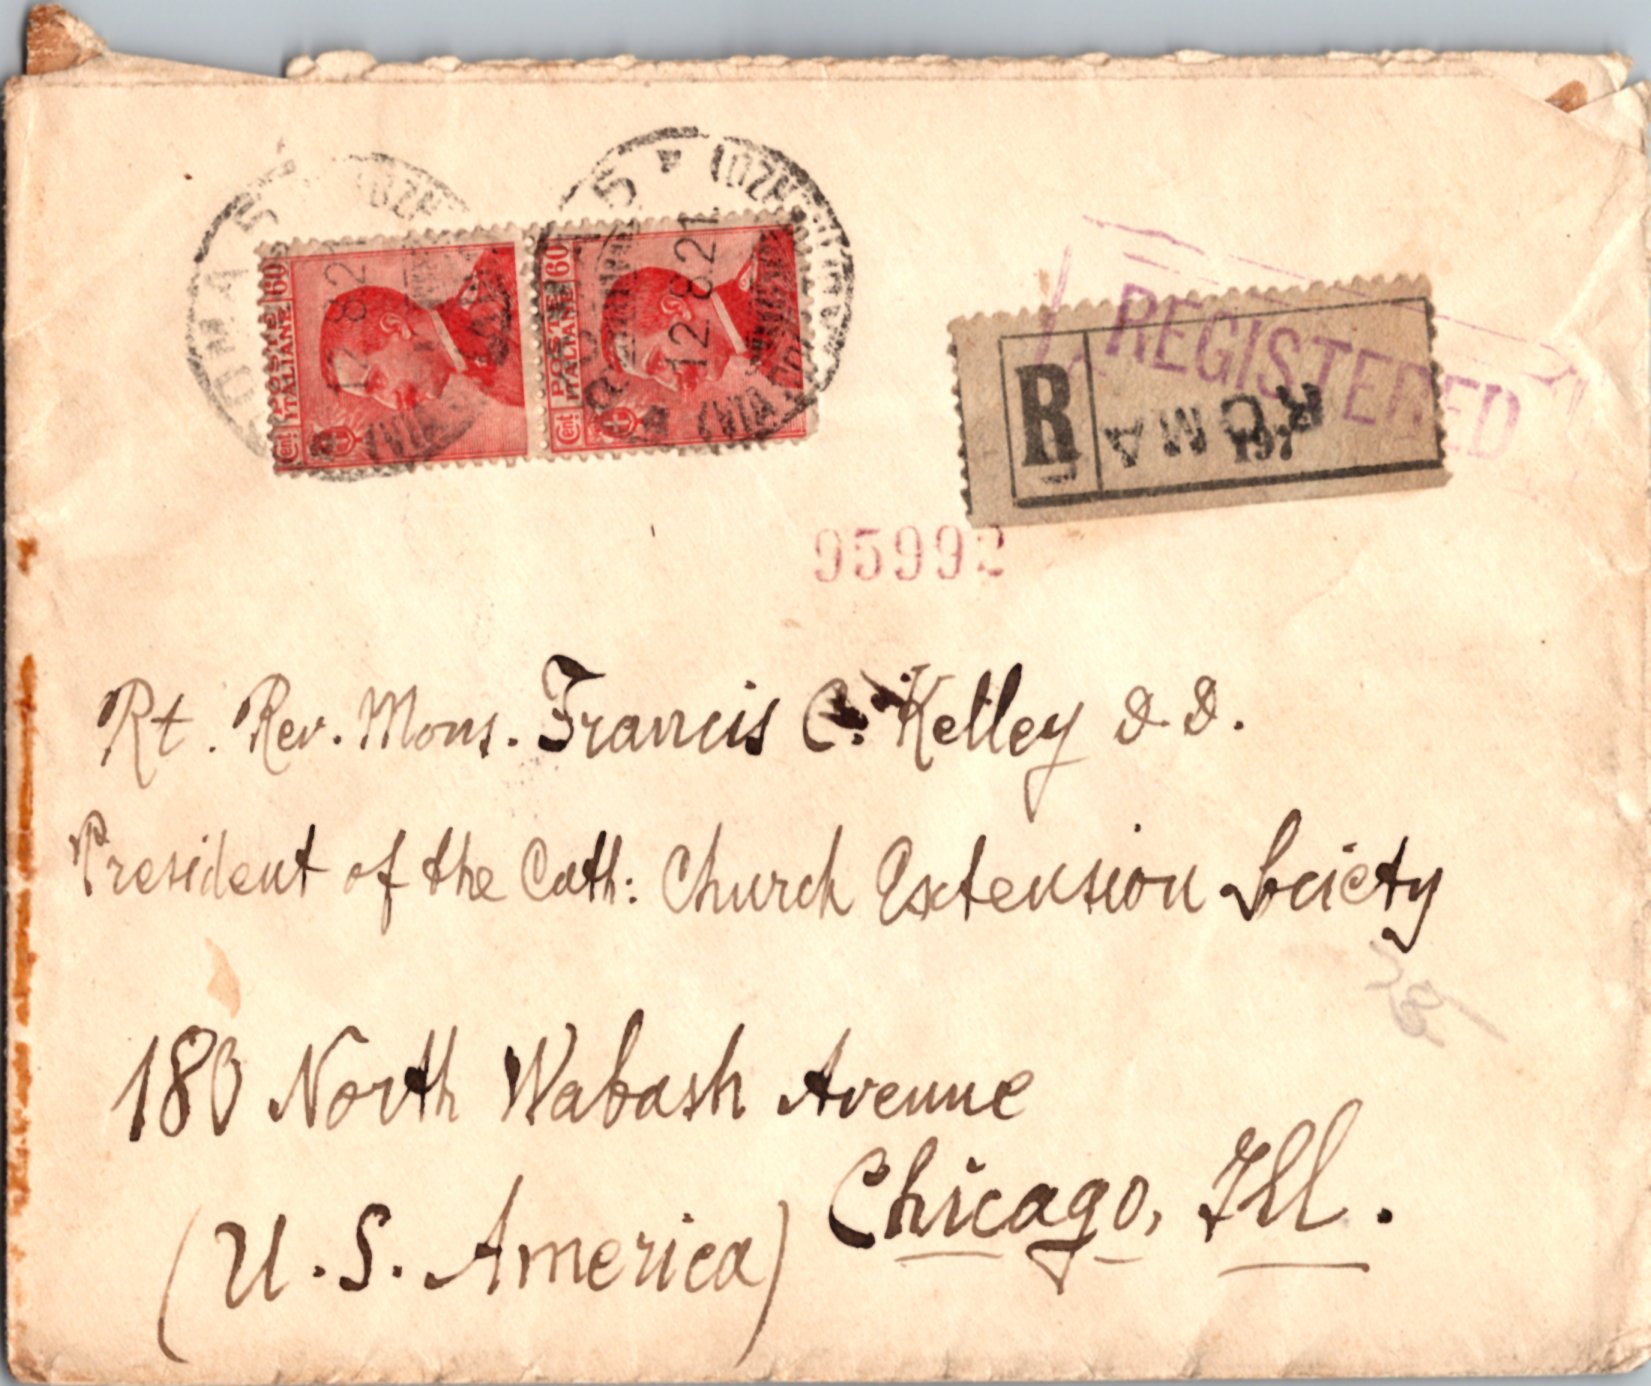 ROMA 5
12 8.21
(VIA
Cent. POSTE ITALIANE 60
Cent. POSTE ITALIANE 60
REGISTERED
R
ROMA
197
95992
Rt. Rev. Mons. Francis C. Kelley D.D.
President of the Cath: Church Extension Society
180 North Wabash Avenue
Chicago, Ill.
(U.S. America)